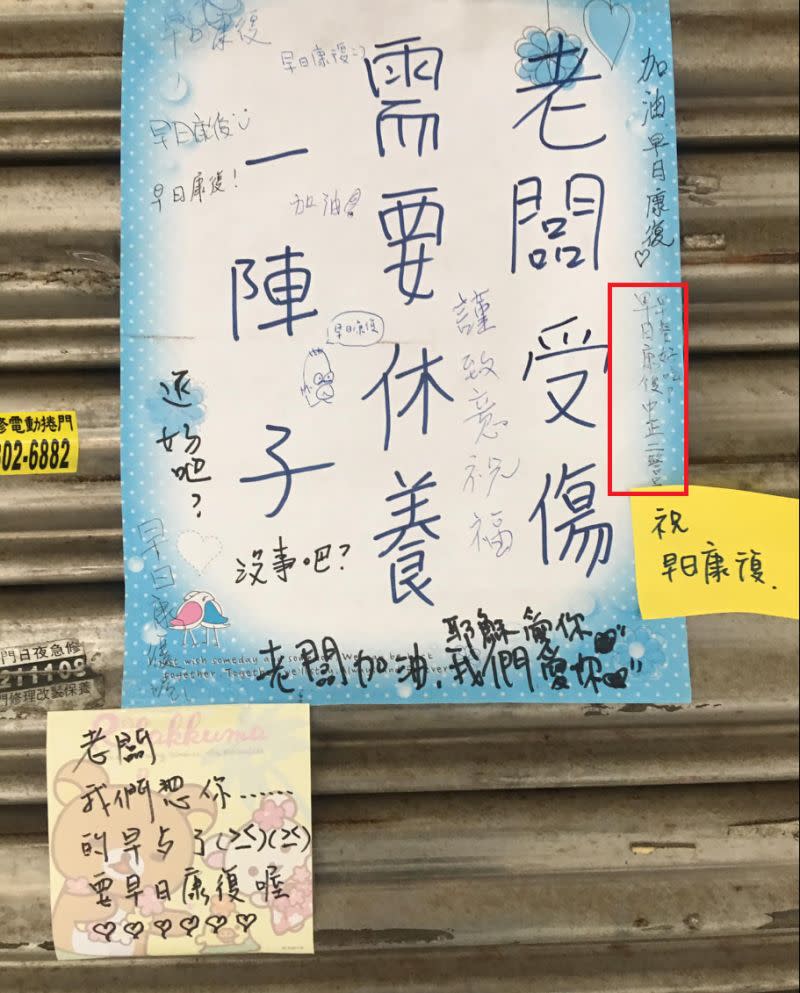 老闆受傷
需要休養
一陣子
謹致意祝福
加油早日康復♡
早日康復中正二
早日康復
早日康復:)
早日康復
早日康復!
加油
早日康復
還好吧?
沒事吧?
早日康復
耶穌愛你
老闆加油,我們愛你
祝
早日康復.
老闆
我們想你......
的早点了(≥≤)(≥≤)
要早日康復喔
♡♡♡♡♡♡
修電動捲門
02-6882
門日夜急修
門修理改裝保養